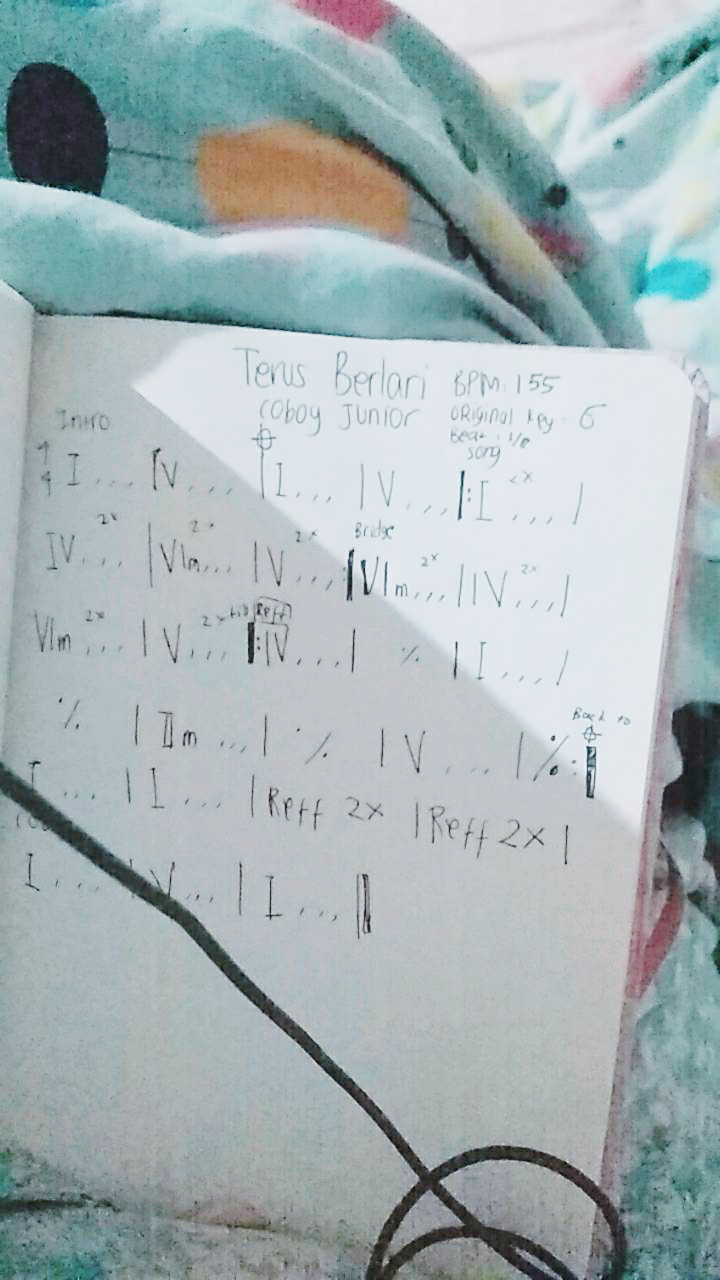 Terus Berlari BPM: 155
Coboy Junior Original key: G
Intro Beat: 1/8
song
4/4 I... |V... |I... |V... |:I ...|
2x 2x 2x Bridge
IV... |VIm... |V... |VIm 2x ...|IV 2x ...|
VIm 2x ... |V... 2x Reff |:IV...| % |I...|
Back to
% |IIm ...| % |V.... |% :|
I ... |I... |Reff 2x |Reff 2x|
I.... |V... |I... ||